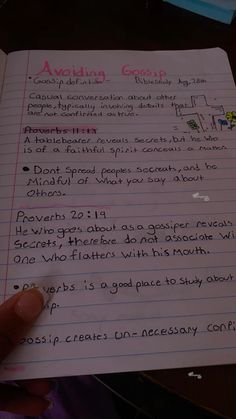 Avoiding Gossip
• Gossip definition - Biblestudy Aug, 28th
Casual conversation about other
people, typically involving details that
are not confirmed as true.
Proverbs 11:13
A talebearer reveals secrets, but he who
is of a faithful spirit conceals a matter.
• Dont Spread peoples Secreats, and be
Mindful of What you say about
Others.
Proverbs 20:19
He who goes about as a gossiper reveals
Secrets, therefore do not associate wi
one who flatters with his mouth.
verbs is a good place to study about
ip.
gossip creates un-necessary conf